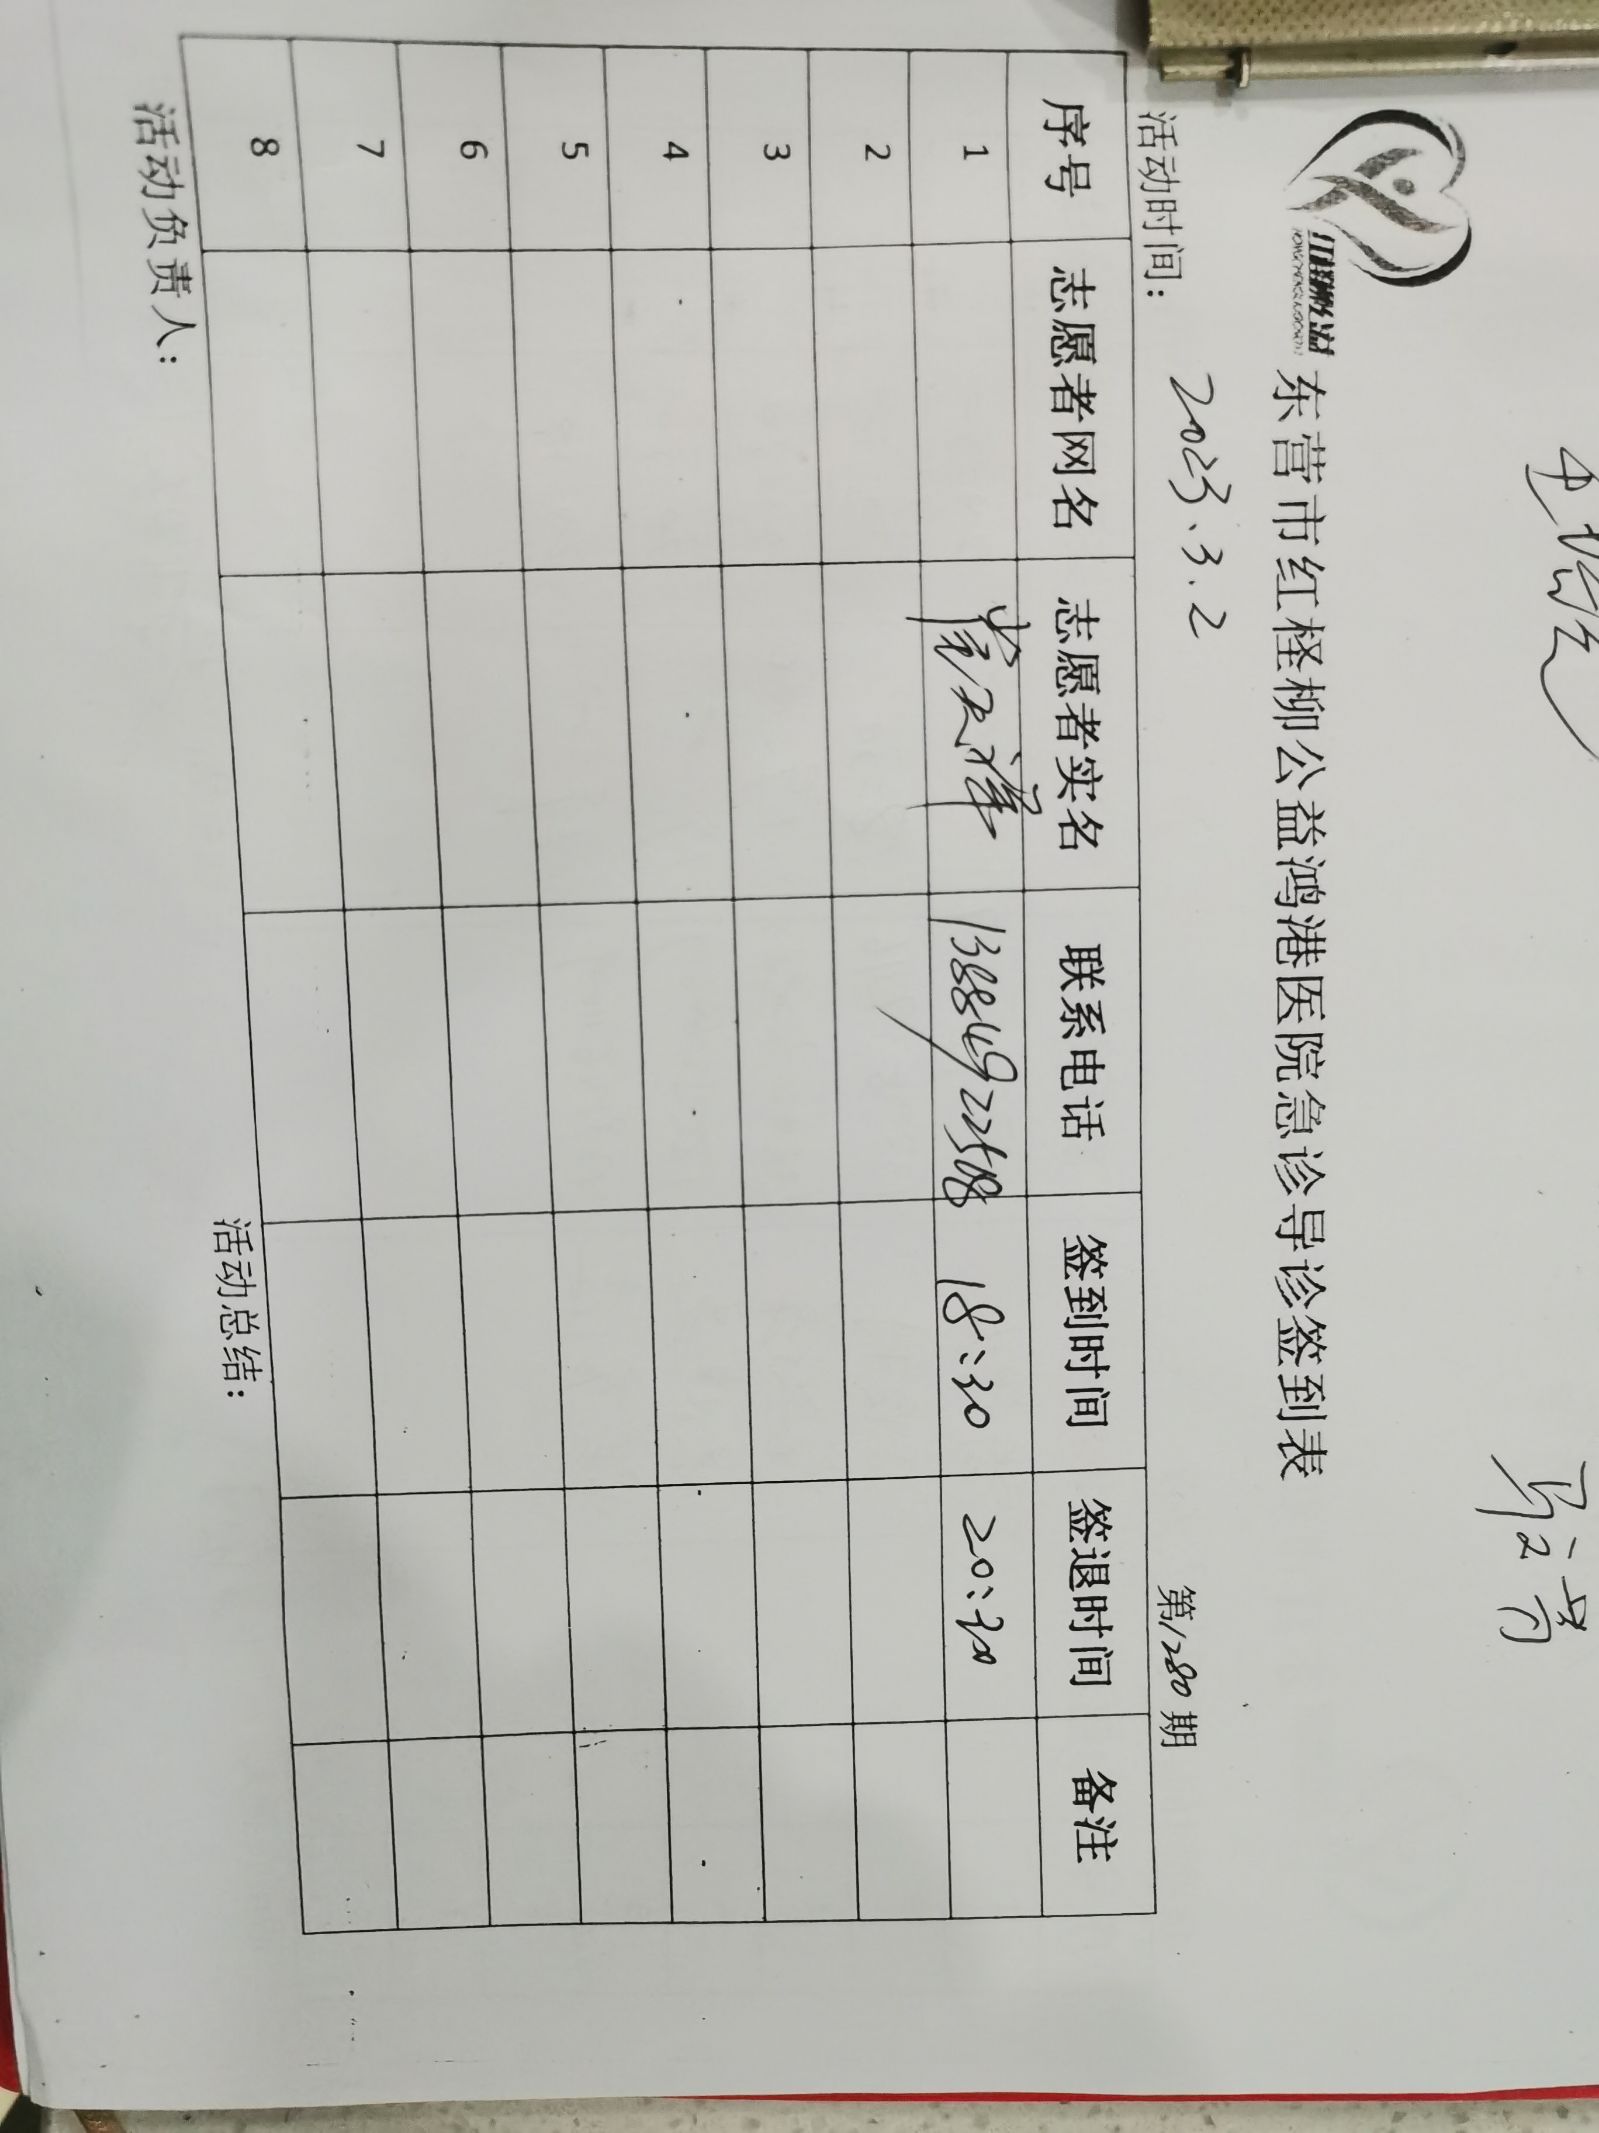 东营市红柽柳公益鸿港医院急诊导诊签到表
活动时间: 2023.3.2 第1280期
序号 志愿者网名 志愿者实名 联系电话 签到时间 签退时间 备注
1 13884922508 18:30 20:30
2
3
4
5
6
7
8
活动负责人: 活动总结: